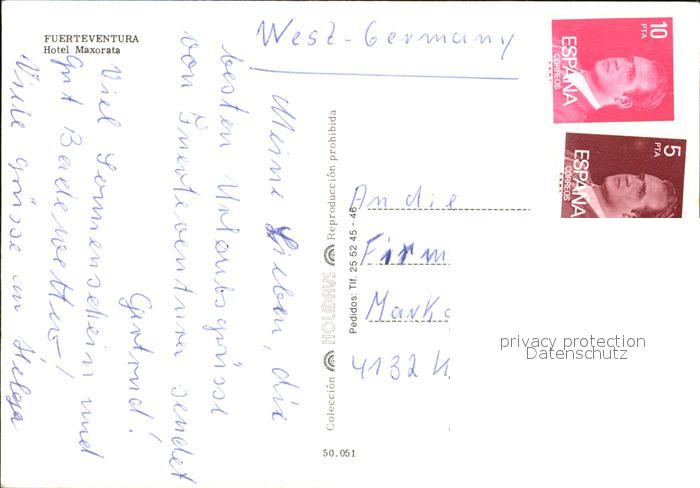 FUERTEVENTURA
Hotel Maxorata
West-Germany
10
PTA
ESPAÑA
CORREOS
5
PTA
ESPAÑA
CORREOS
Meine Lieben, die
besten Urlaubsgrüsse
von Fuerteventura sendet
Gertrud!
Viel Sonnenschein und
gut Badewetter!
Viele Grüsse an Helga
Colección HOLIDAYS Reproducción prohibida
Pedidos: Tlf. 25 52 45 - 46
An die
Firm
Mark
4132 K
50.051
privacy protection
Datenschutz